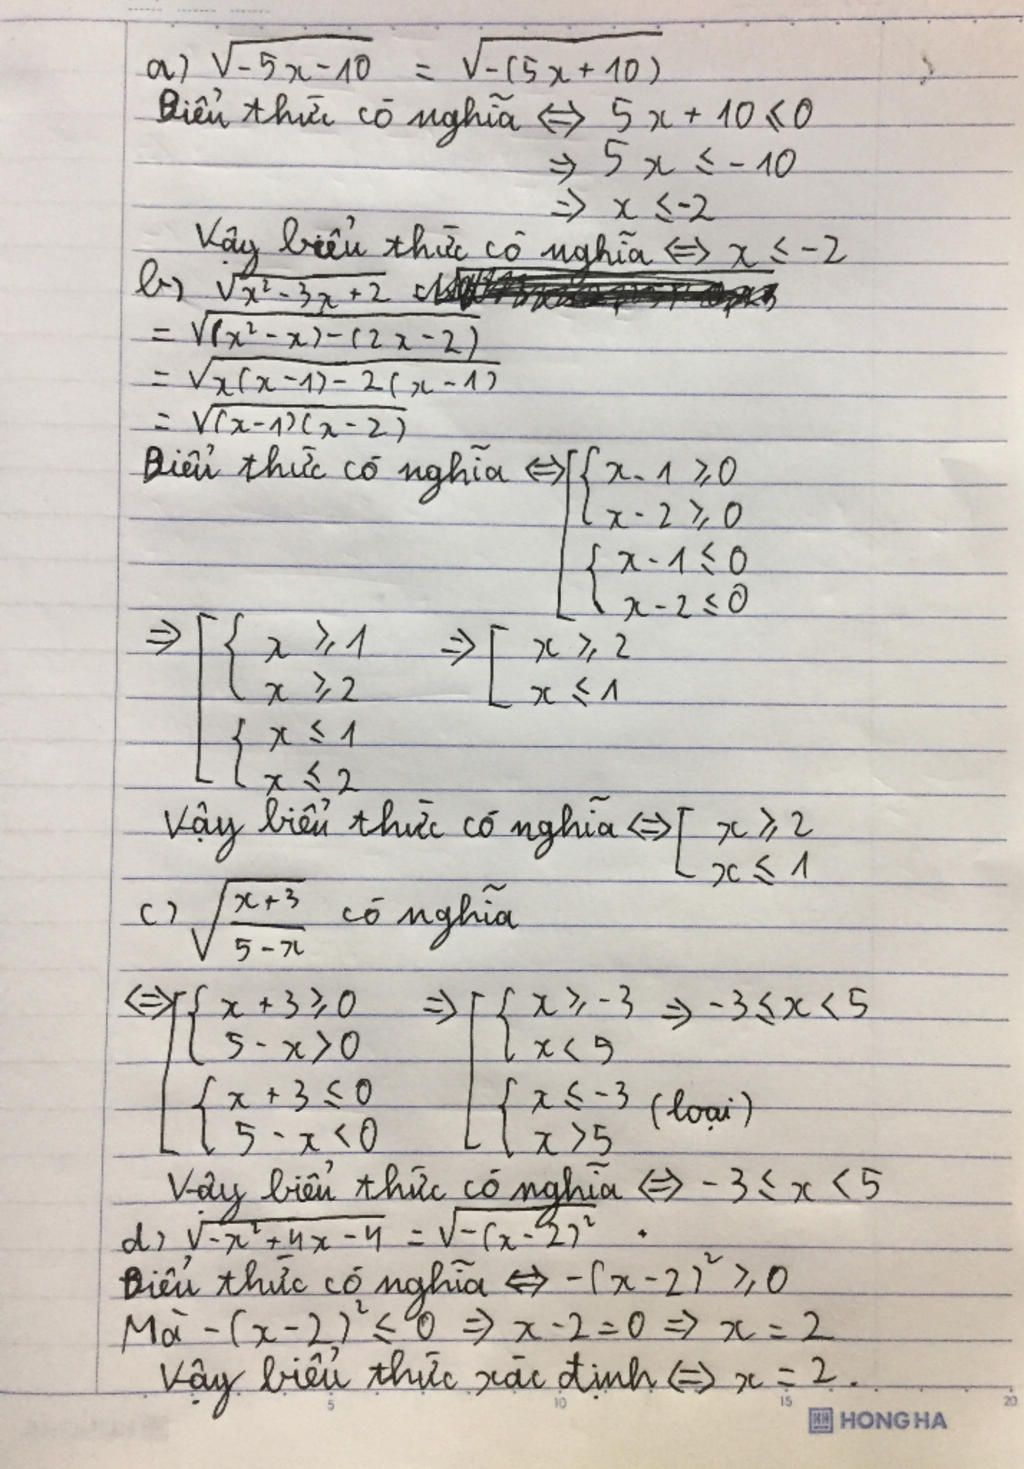 a) √(-5x-10) = √(-(5x+10))
Biểu thức có nghĩa ⇔ 5x + 10 ≤ 0
⇒ 5x ≤ -10
⇒ x ≤ -2
Vậy biểu thức có nghĩa ⇔ x ≤ -2
b) √(x²-3x+2)
= √((x²-x)-(2x-2))
= √(x(x-1)-2(x-1))
= √((x-1)(x-2))
Biểu thức có nghĩa ⇔ [ { x-1 ≥ 0
x-2 ≥ 0
{ x-1 ≤ 0
x-2 ≤ 0
⇒ [ { x ≥ 1 ⇒ [ x ≥ 2
x ≥ 2 x ≤ 1
{ x ≤ 1
x ≤ 2
Vậy biểu thức có nghĩa ⇔ [ x ≥ 2
x ≤ 1
c) √((x+3)/(5-x)) có nghĩa
⇔ [ { x+3 ≥ 0 ⇒ [ { x ≥ -3 ⇒ -3 ≤ x < 5
5-x > 0 x < 5
{ x+3 ≤ 0 { x ≤ -3 (loại)
5-x < 0 x > 5
Vậy biểu thức có nghĩa ⇔ -3 ≤ x < 5
d) √(-x²+4x-4) = √(-(x-2)²) .
Biểu thức có nghĩa ⇔ -(x-2)² ≥ 0
Mà -(x-2)² ≤ 0 ⇒ x-2=0 ⇒ x = 2
Vậy biểu thức xác định ⇔ x = 2.
5 10 15 20
HONG HA